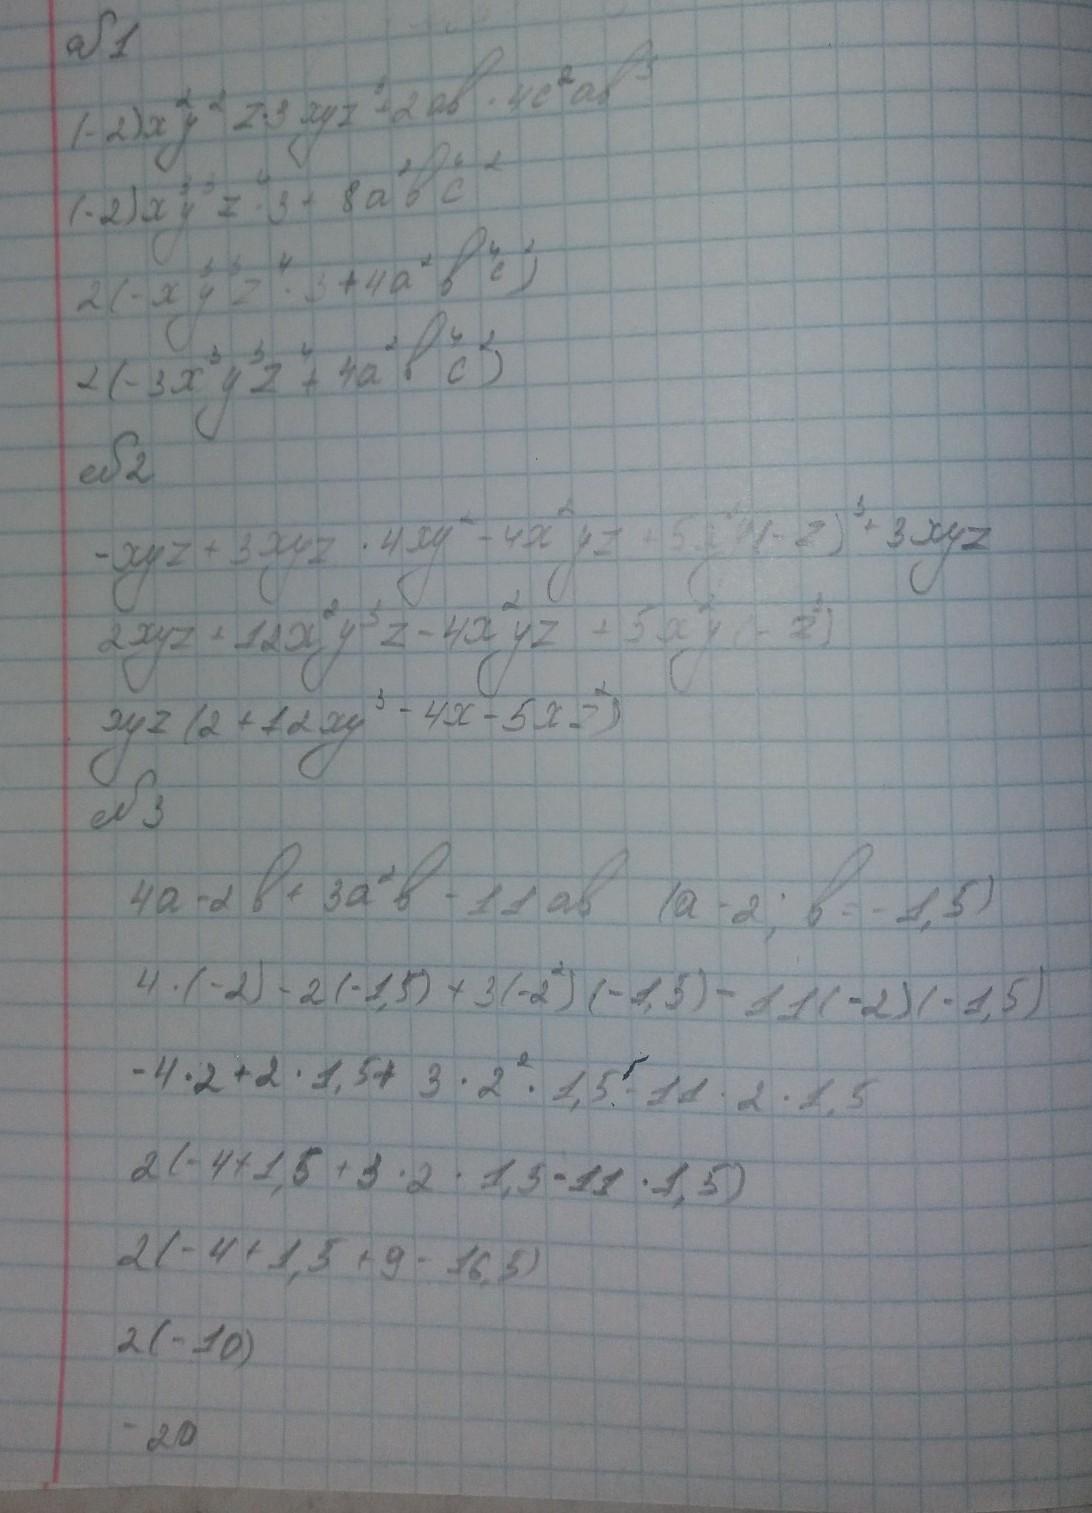 №1
(-2)x²y²z·3xyz³+2ab·4c²ab³
(-2)x³y³z⁴·3+8a²b⁴c²
2(-x³y³z⁴·3+4a²b⁴c²)
2(-3x³y³z⁴+4a²b⁴c²)
№2
-xyz+3xyz·4xy²-4x²yz+5x²y(-z)³+3xyz
2xyz+12x²y³z-4x²yz+5x²y(-z³)
xyz(2+12xy³-4x-5xz²)
№3
4a-2b+3a²b-11ab (a-2; b=-1,5)
4·(-2)-2(-1,5)+3(-2²)(-1,5)-11(-2)(-1,5)
-4·2+2·1,5+3·2²·1,5-11·2·1,5
2(-4+1,5+3·2·1,5-11·1,5)
2(-4+1,5+9-16,5)
2(-10)
-20